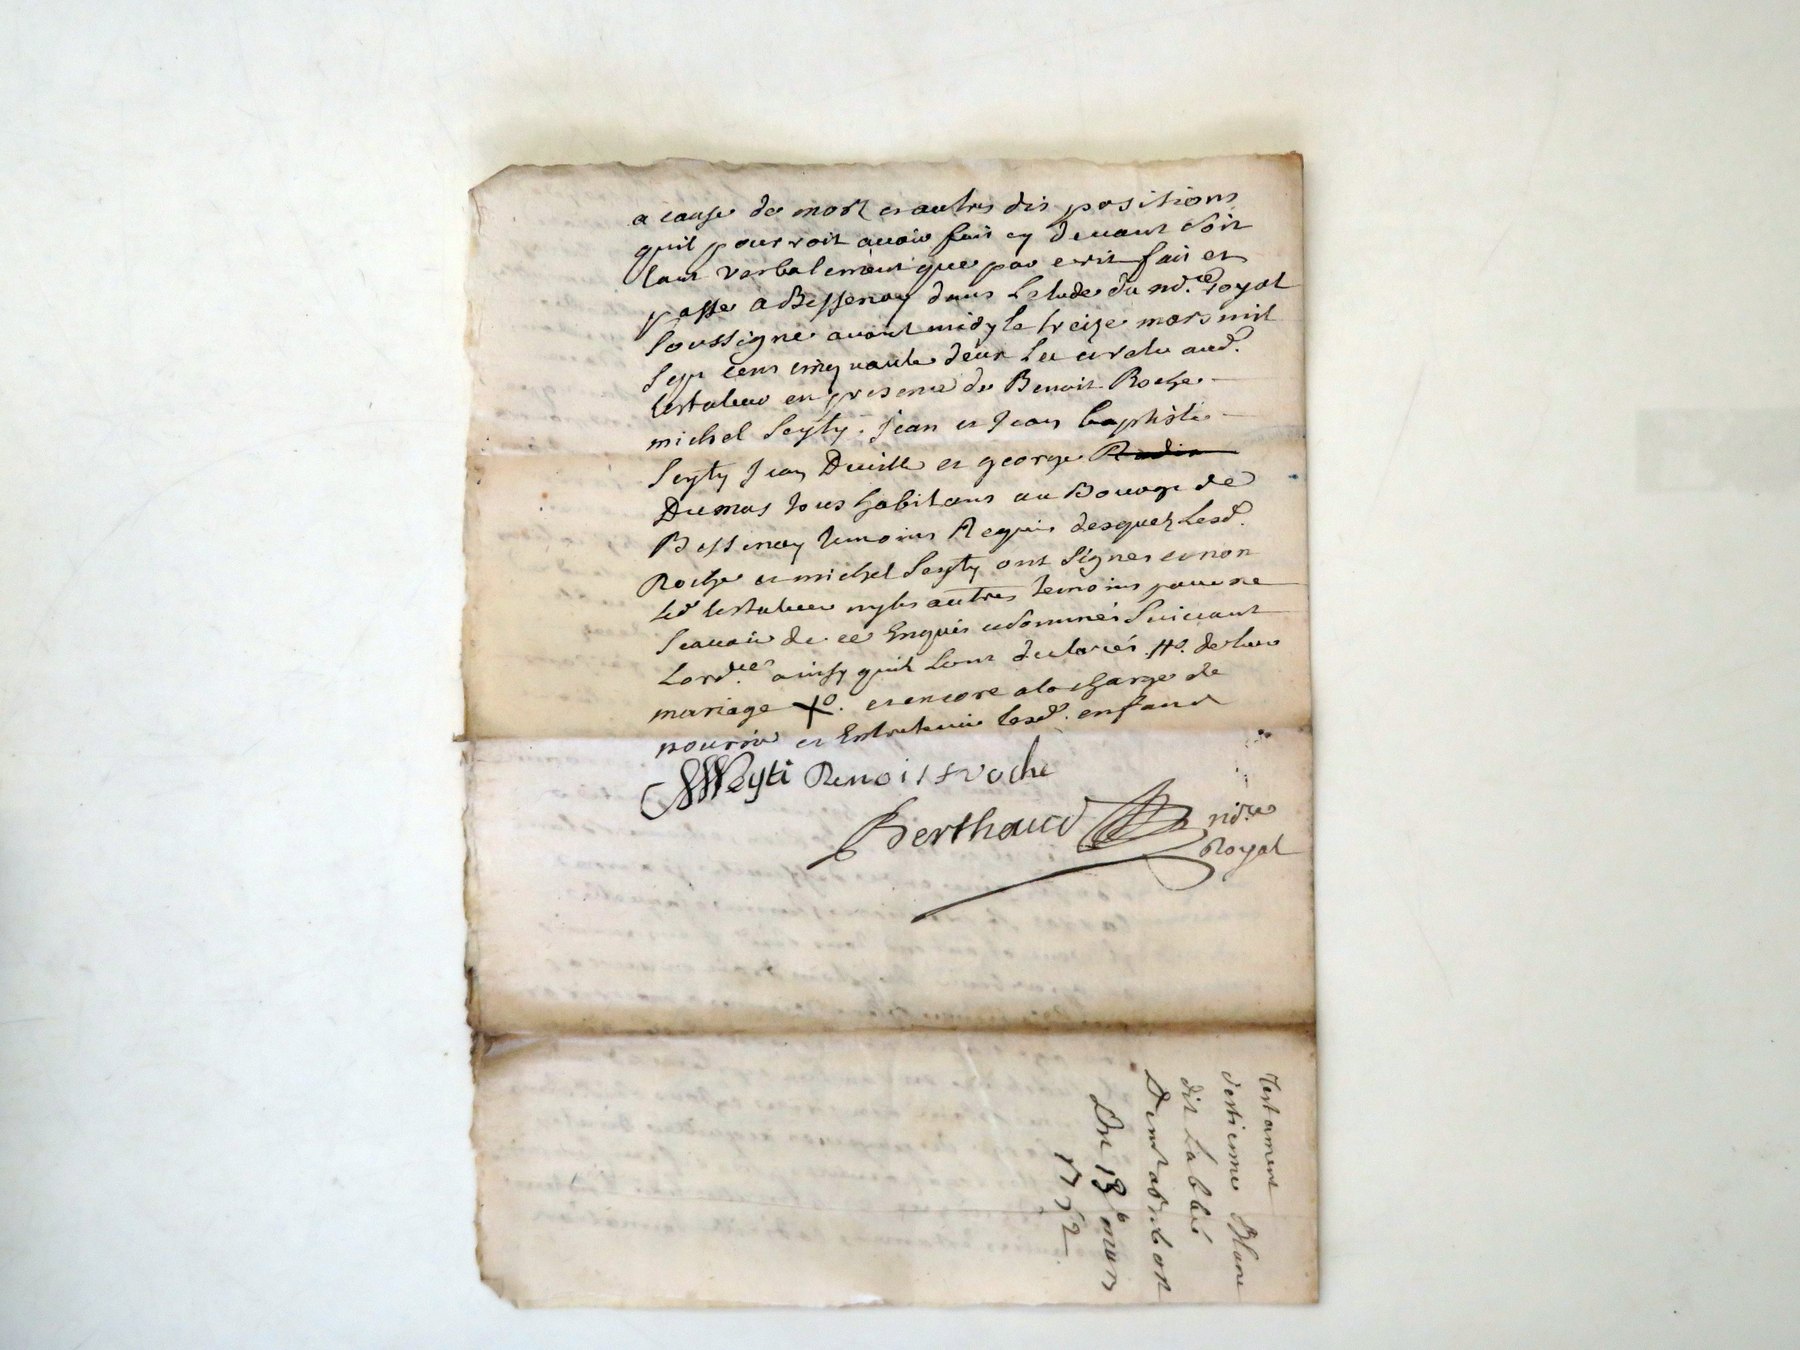 a cause de mort et autres dis positions
quil pourroit avoir fait cy devant soit
tant verbalement que par ecrit fait et
passe a Bessenay dans letude du no.re royal
soussigne avant midy le treize mars mil
sept cens cinquante deux leu et relu aud.
testateur en presence de Benoit Roche
michel Seyty. Jean et Jean baptiste
Seyty Jean Duille et george
Dumas tous habitans au Bourg de
Bessenay temoins Requis desquels lesd.
Roche et michel Seyty ont signes et non
led testateur ny les autres temoins pour ne
scavoir de ce Enquis et sommés suivant
Lord.ce ainsy quil lont declarés. de leur
mariage Xo. et encore a la charge de
nourrir et Entretenir lesd. enfans
MSeyti Benoist roche
Berthaud no.re
Royal
Testament
destienne Blanc
dit Labbé
Du 13e mars
1752